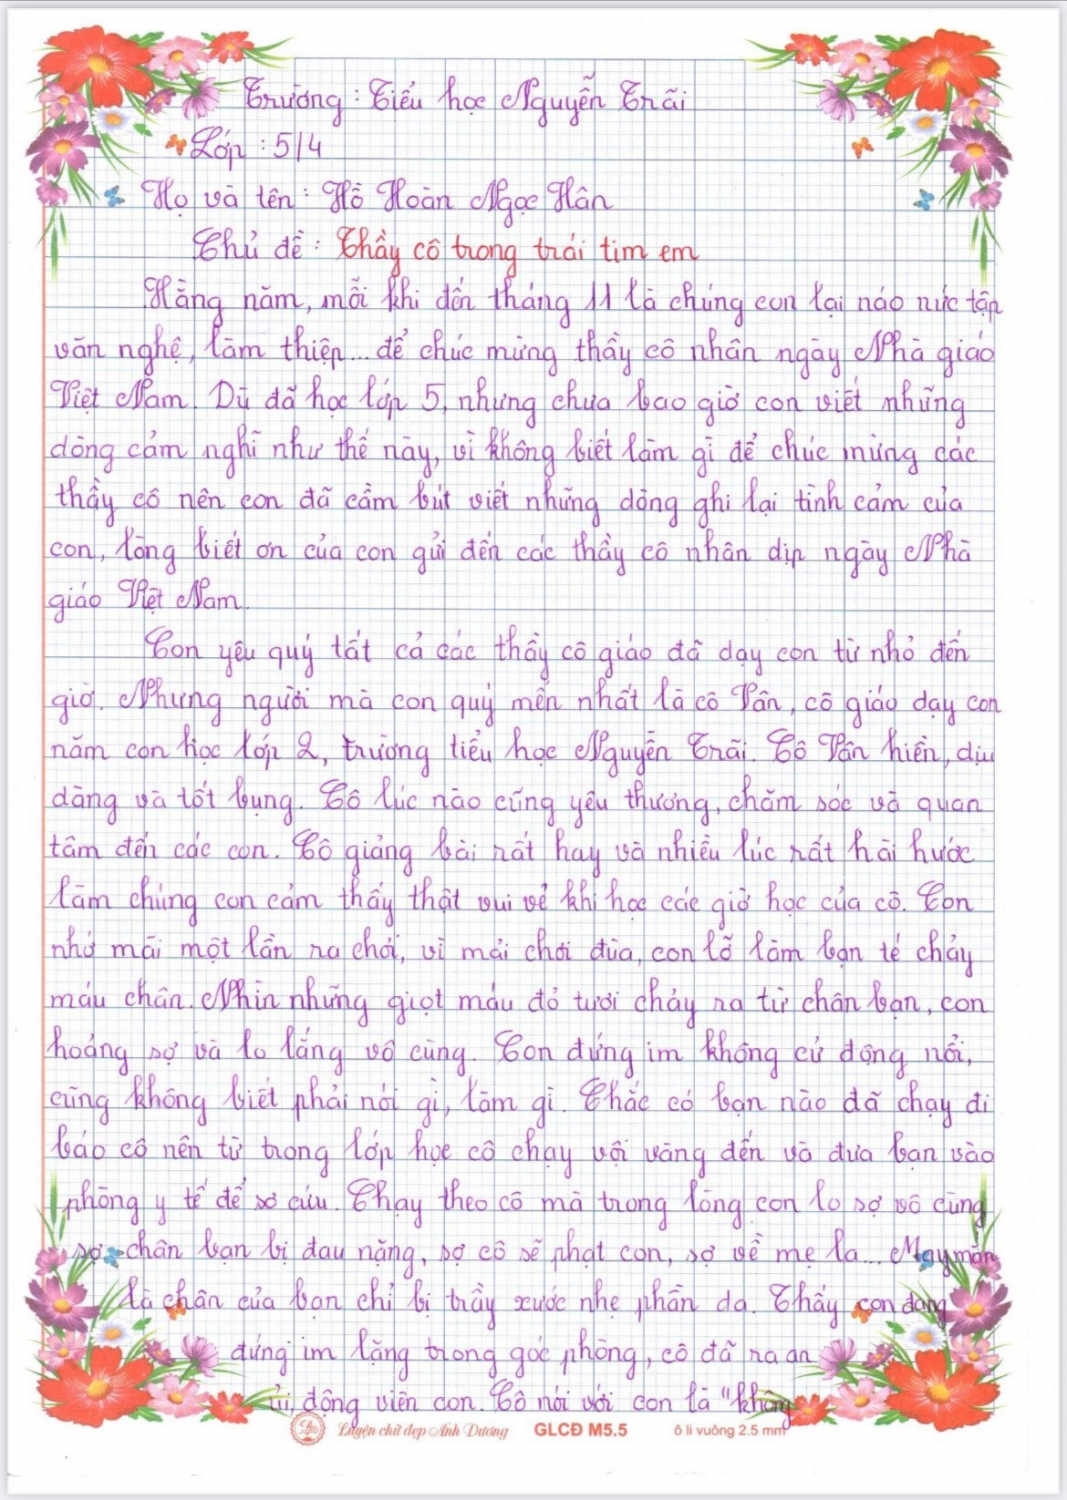 Trường : Tiểu học Nguyễn Trãi
Lớp : 5/4
Họ và tên : Hồ Hoàn Ngọc Hân
Chủ đề : Thầy cô trong trái tim em
Hằng năm, mỗi khi đến tháng 11 là chúng con lại náo nức tập
văn nghệ, làm thiệp... để chúc mừng thầy cô nhân ngày Nhà giáo
Việt Nam. Dù đã học lớp 5, nhưng chưa bao giờ con viết những
dòng cảm nghĩ như thế này, vì không biết làm gì để chúc mừng các
thầy cô nên con đã cầm bút viết những dòng ghi lại tình cảm của
con, lòng biết ơn của con gửi đến các thầy cô nhân dịp ngày Nhà
giáo Việt Nam.
Con yêu quý tất cả các thầy cô giáo đã dạy con từ nhỏ đến
giờ. Nhưng người mà con quý mến nhất là cô Vân, cô giáo dạy con
năm con học lớp 2, trường tiểu học Nguyễn Trãi. Cô Vân hiền, dịu
dàng và tốt bụng. Cô lúc nào cũng yêu thương, chăm sóc và quan
tâm đến các con. Cô giảng bài rất hay và nhiều lúc rất hài hước
làm chúng con cảm thấy thật vui vẻ khi học các giờ học của cô. Con
nhớ mãi một lần ra chơi, vì mải chơi đùa, con lỡ làm bạn té chảy
máu chân. Nhìn những giọt máu đỏ tươi chảy ra từ chân bạn, con
hoảng sợ và lo lắng vô cùng. Con đứng im không cử động nổi,
cũng không biết phải nói gì, làm gì. Chắc có bạn nào đã chạy đi
báo cô nên từ trong lớp học cô chạy vội vàng đến và đưa bạn vào
phòng y tế để sơ cứu. Chạy theo cô mà trong lòng con lo sợ vô cùng
sợ chân bạn bị đau nặng, sợ cô sẽ phạt con, sợ về mẹ la... May mắn
là chân của bạn chỉ bị trầy xước nhẹ phần da. Thấy con đang
đứng im lặng trong góc phòng, cô đã ra an
ủi, động viên con. Cô nói với con là "không
Luyện chữ đẹp Ánh Dương GLCĐ M5.5 ô li vuông 2.5 mm